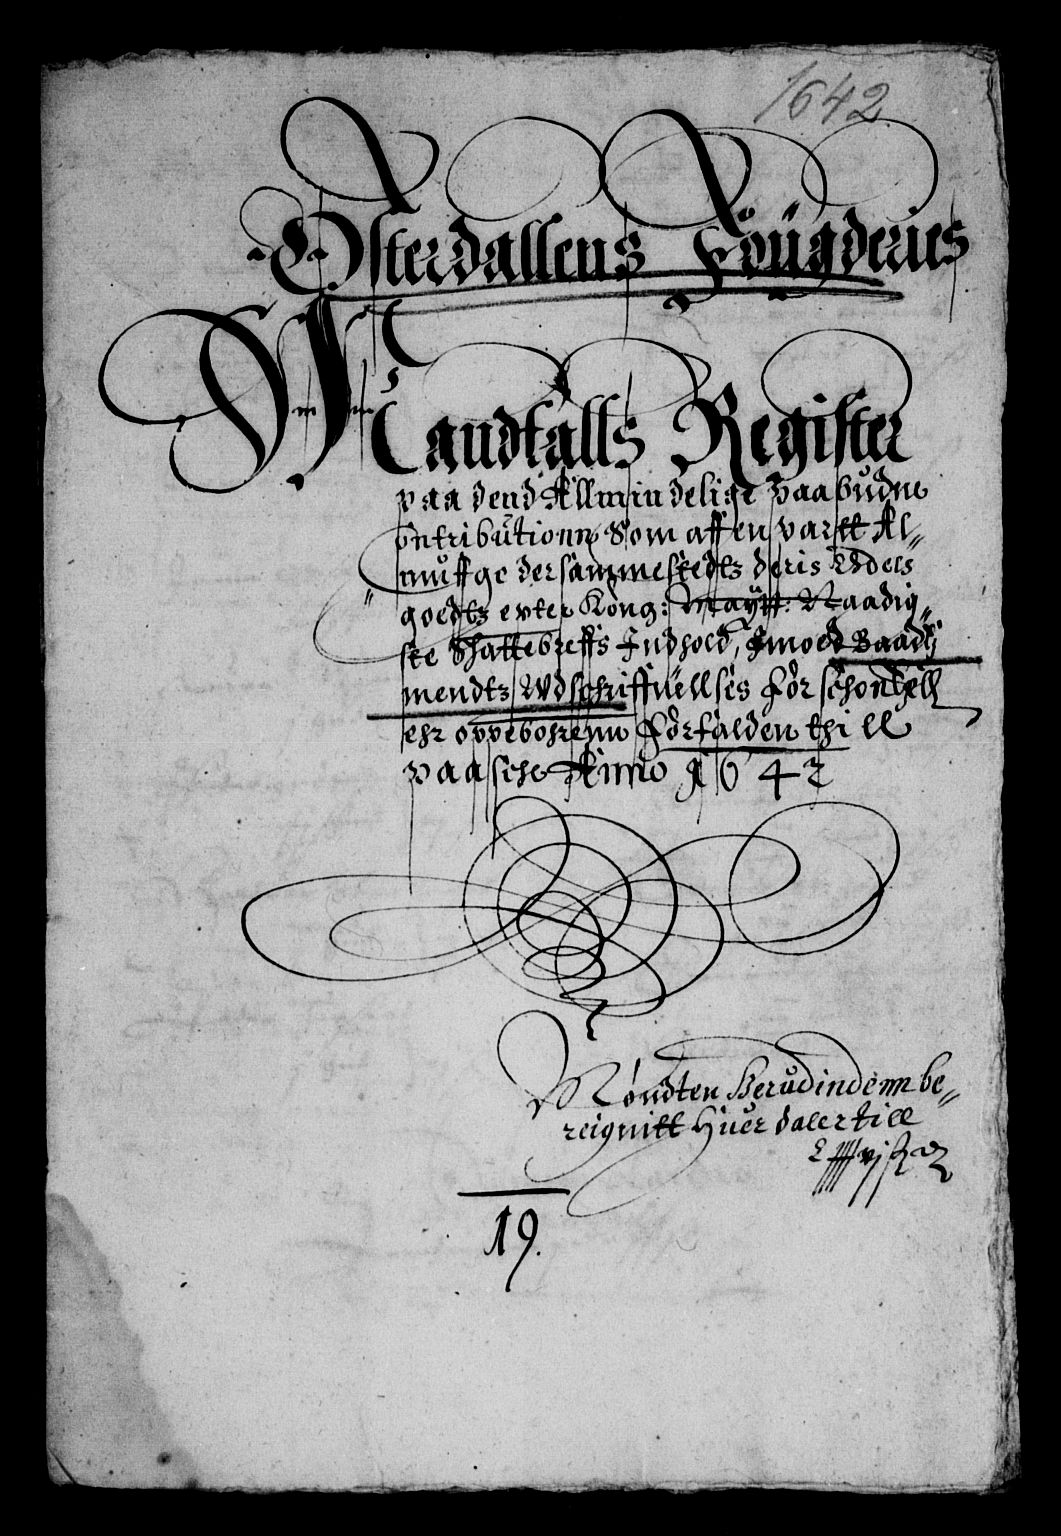 1642
Østerdallens Fougderies
Mandtalls Register
paa dend Allmindelige paabudne
Contributionn, Som aff en partt Al-
muffge dersammestedtz deris Odels
goedtz epter Kong: Maÿtt: Naadig-
ste Shattebreffs Indhold, Imod Baadtz
mendtz Udschriffuellses forschonsell
ehr oppebohrenn Forfalden thill
paasche Anno 1642
Mÿndten Herudindenn be-
reignitt Huer daler till
19.